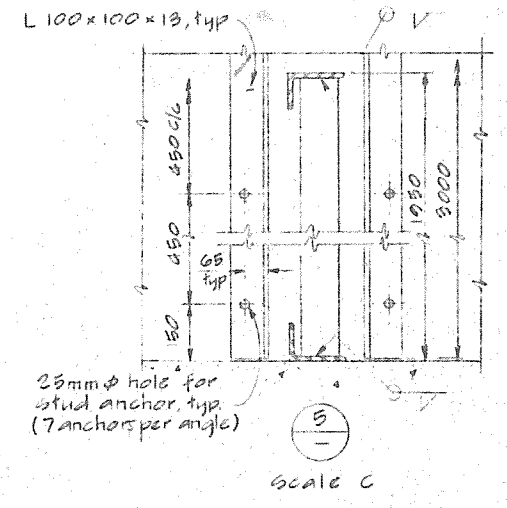 L 100×100×13, typ
450 c/c
450
150
65
typ
1950
3000
25mm ϕ hole for
stud anchor, typ.
(7 anchors per angle)
5
Scale C